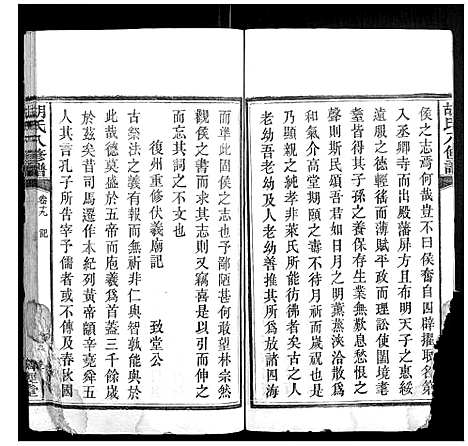 胡氏八修譜
侯之志焉何哉豈不曰侯奮自四辟擢取名第
入丞卿寺而出殿藩屏方且布明天子之惠試
遠服之德輕徭而薄賦平政而理訟使闔境耄
耋皆得其子孫之養保存生業無歎息愁恨之
聲則斯民頌吾君如日月之明薰蒸浹洽散為
和氣介高堂期頤之壽與邦人同其樂焉此侯
乃大顯親之純孝非萊氏所能彷彿者也然則
老幼吾老幼及人老幼善推其所為放諸四海
而準此固侯之志也予鄙陋甚何敢望林宗然
觀侯之書而求其志則又竊喜是以引而伸之
于記詞之不文也
復州重修伏羲廟記
致堂公
古祭法之義有報而無祈非仁與智教孰能與於
此哉德莫盛於五帝而庖羲為首蓋三千餘歲
於茲矣昔司馬遷作本紀列黃帝顓辛堯舜五
人其言孔子所告宰予儒者或不傳及春秋國
胡氏八修譜
卷十九
記